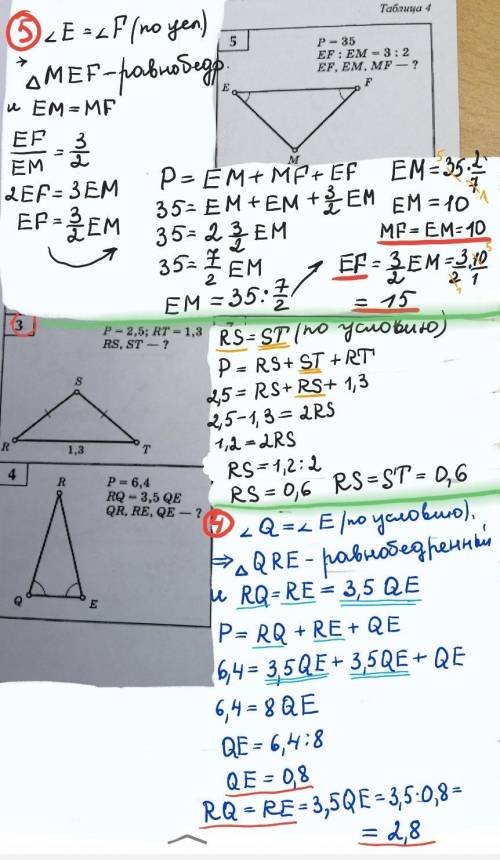 Таблица 4
5
P = 35
EF : EM = 3 : 2
EF, EM, MF — ?
E
F
M
⑤ ∠E = ∠F (по усл)
→ △MEF - равнобедр.
и EM = MF
EF/EM = 3/2
2EF = 3EM
EF = 3/2 EM
P = EM + MF + EF
35 = EM + EM + 3/2 EM
35 = 2 3/2 EM
35 = 7/2 EM
EM = 35 : 7/2
EM = 35 · 2/7
5
1
EM = 10
MF = EM = 10
EF = 3/2 EM = 3/2 · 10/1
5
1
= 15
3
P = 2,5; RT = 1,3
RS, ST — ?
S
R
1,3
T
RS = ST (по условию)
P = RS + ST + RT
2,5 = RS + RS + 1,3
2,5 - 1,3 = 2RS
1,2 = 2RS
RS = 1,2 : 2
RS = 0,6 RS = ST = 0,6
4
P = 6,4
RQ = 3,5 QE
QR, RE, QE — ?
R
Q
E
④ ∠Q = ∠E (по условию),
⇒ △QRE - равнобедренный
и RQ = RE = 3,5 QE
P = RQ + RE + QE
6,4 = 3,5QE + 3,5QE + QE
6,4 = 8QE
QE = 6,4 : 8
QE = 0,8
RQ = RE = 3,5QE = 3,5 · 0,8 =
= 2,8